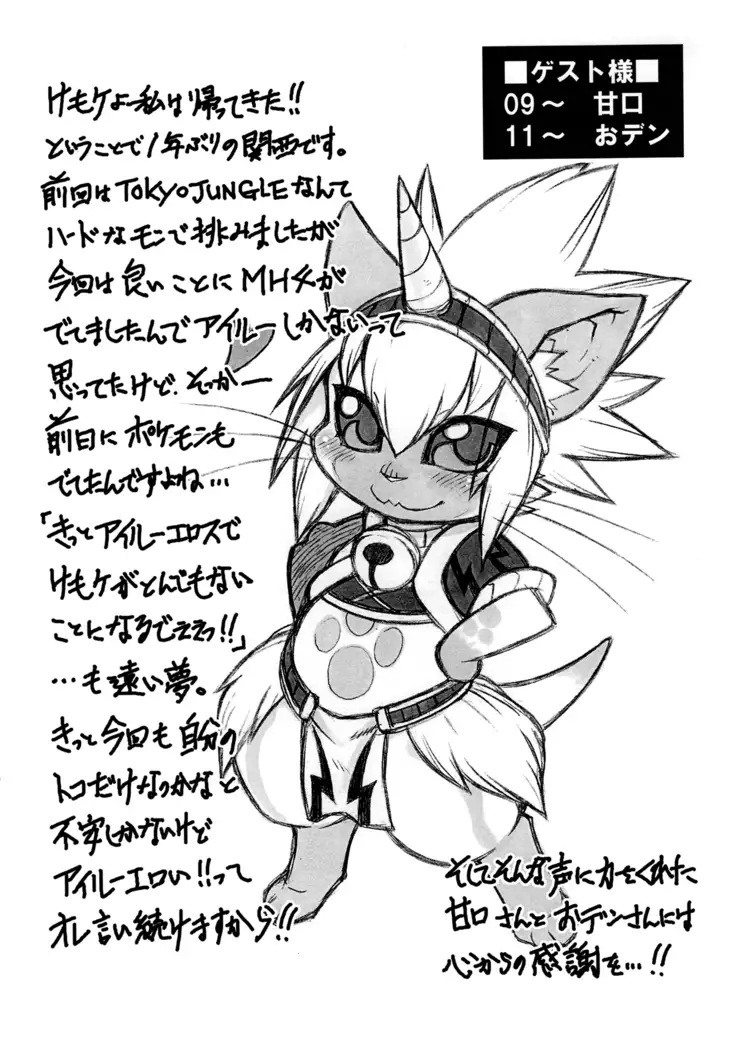 ■ゲスト様■
09～ 甘口
11～ おデン
けもケよー私は帰ってきた!!
ということで1年ぶりの関西です。
前回はTOKYO JUNGLEなんて
ハードなモンで挑みましたが
今回は良いことにMH4が
でてましたんでアイルーしかないって
思ってたけど、そっかー
前日にポケモンも
でてたんですよね…
「きっとアイルーエロスで
けもケがとんでもない
ことになるでええっ!!」
…も遠い夢。
きっと今回も自分の
トコだけなっかなと
不安しかないけど
アイルーエロい!!って
オレ言い続けますから!!
そしてそんな声に力をくれた
甘口さんとおデンさんには
心からの感謝を…!!